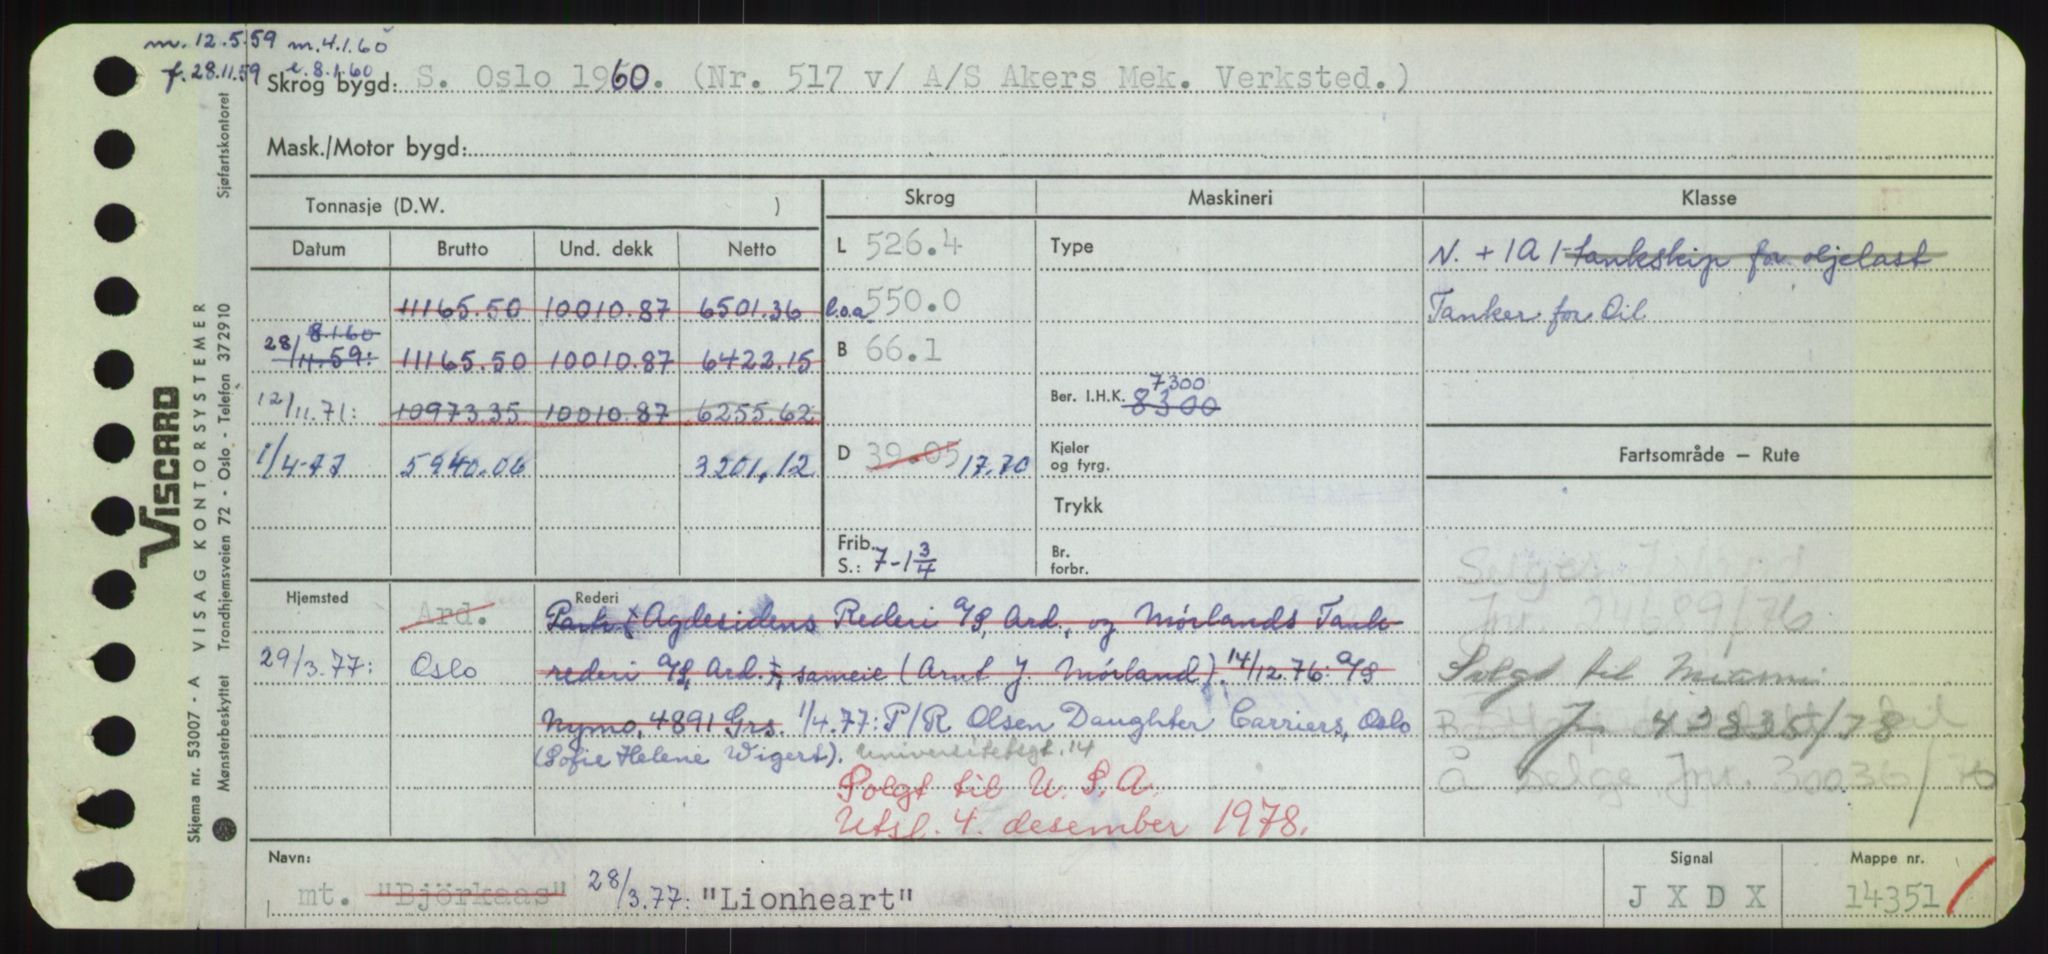 m. 12.5.59 m. 4.1.60
f. 28.11.59 l. 8.1.60
Skrog bygd: S. Oslo 1960. (Nr. 517 v/ A/S Akers Mek. Verksted.)
Mask./Motor bygd:
Tonnasje (D.W. )
Skrog Maskineri Klasse
Datum Brutto Und. dekk Netto
L 526.4 Type
N. + 1A 1 - Tankskip for oljelast
11165.50 10010.87 6501.36 l.o.a. 550.0
Tanker for Oil
8.1.60
28/11.59: 11165.50 10010.87 6422.15 B 66.1
12/11.71: 10973.35 10010.87 6255.62
7300
Ber. I.H.K. 8300
1/4-77 5940.06 3201,12 D 39.05 17.70
Kjeler
og fyrg.
Fartsområde – Rute
Trykk
Frib.
S.: 7-1 3/4
Br.
forbr.
Hjemsted Ard. Rederi
Agdesidens Rederi A/S, Ard., og Mørlands Tank-
29/3.77: Oslo rederi A/S, Ard., sameie (Arnt J. Mørland). 14/12.76: A/S
Nymo, 4891 Grs. 1/4.77: P/R Olsen Daughter Carriers, Oslo
(Sofie Helene Wigert). Universitetsgt. 14
Solgt til U.S.A.
Utsl. 4. desember 1978.
Jnr. 24689/76
Solgt til Miami
Jnr 43835/78
Å selge, Jnr. 30036/76
Navn: mt. "Björkaas" 28/3.77: "Lionheart"
Signal J X D X
Mappe nr. 14351
VISCARD
Skjema nr. 53007 - A VISAG KONTORSYSTEMER
Mønsterbeskyttet Trondhjemsveien 72 - Oslo - Telefon 372910
Sjøfartskontoret